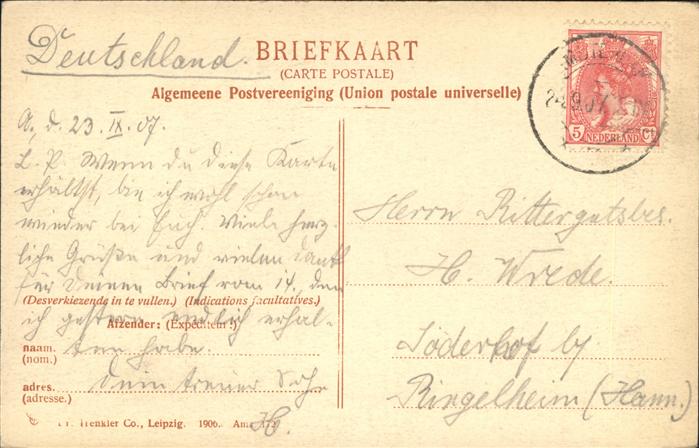 Deutschland.
BRIEFKAART
(CARTE POSTALE)
Algemeene Postvereeniging (Union postale universelle)
5 Ct
NEDERLAND
A., d. 23. IX. 07.
L. P. Wenn du diese Karte
erhältst, bin ich wohl schon
wieder bei Euch. Viele herz-
liche Grüße und vielen Dank
für Deinen Brief vom 14., den
(Desverkiezende in te vullen.) (Indications facultatives.)
ich gestern endlich erhal-
Afzender: (Expéditeur:)
ten habe.
naam.
(nom.)
Dein treuer Sohn
adres.
(adresse.)
H.
Henkler Co., Leipzig. 1906.
Herrn Rittergutsbes.
H. Wrede.
Söderhof by
Ringelheim (Hann.)